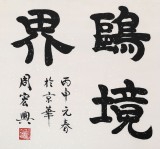 鷗境
界
丙申元春
於京華
周宏興